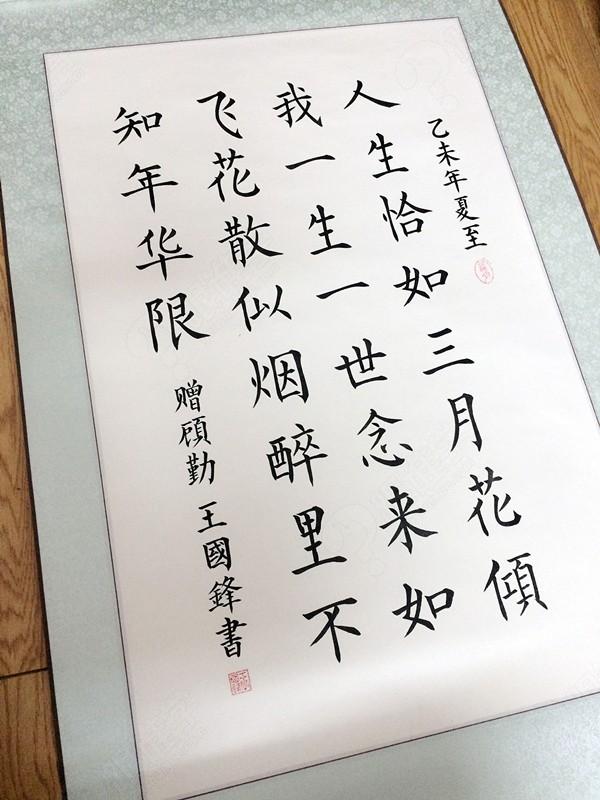 乙未年夏至
人生恰如三月花傾
我一生一世念来如
飞花散似烟醉里不
知年华限
赠顾勤 王國鋒書